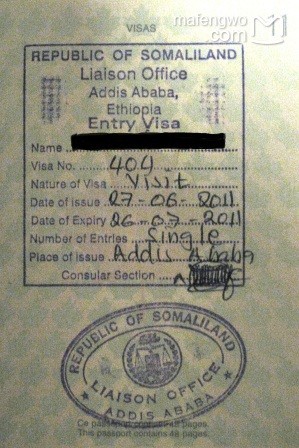 mafengwo
.com
VISAS
REPUBLIC OF SOMALILAND
Liaison Office
Addis Ababa,
Ethiopia
Entry Visa
Name
Visa No. 404
Nature of Visa Visit
Date of issue 27-06-2011
Date of Expiry 26-07-2011
Number of Entries Single
Place of issue Addis Ababa
Consular Section
REPUBLIC OF SOMALILAND
LIAISON OFFICE
ADDIS ABABA
Ce passeport contient 48 pages.
This passport contains 48 pages.